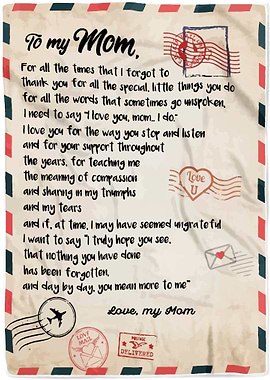 To my Mom,
For all the times that I forgot to
thank you for all the special, little things you do
for all the words that sometimes go unspoken,
I need to say "I love you, mom... I do."
I love you for the way you stop and listen
and for your support throughout
the years, for teaching me
the meaning of compassion
and sharing in my triumphs
and my tears
and if, at time, I may have seemed ungrateful
I want to say "I truly hope you see,
that nothing you have done
has been forgotten,
and day by day, you mean more to me"
Love, my Mom
LOVE
U
LOVE
MAIL
POSTAGE
DELIVERED